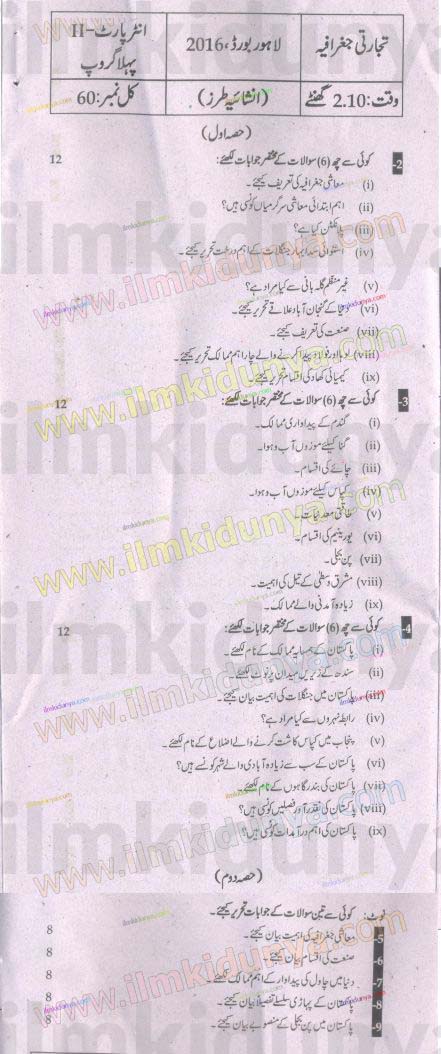 تجارتی جغرافیہ
لاہور بورڈ، 2016
انٹر پارٹ-II
پہلا گروپ
وقت: 2.10 گھنٹے
(انشائیہ طرز)
کل نمبر: 60
(حصہ اول)
2- کوئی سے چھ (6) سوالات کے مختصر جوابات لکھئے: 12
(i) معاشی جغرافیہ کی تعریف کیجئے۔
(ii) اہم ابتدائی معاشی سرگرمیاں کونسی ہیں؟
(iii) پلانکٹن کیا ہے؟
(iv) استوائی سدا بہار جنگلات کے اہم درخت تحریر کیجئے۔
(v) غیر منظم گلہ بانی سے کیا مراد ہے؟
(vi) دنیا کے گنجان آباد علاقے تحریر کیجئے۔
(vii) صنعت کی تعریف کیجئے۔
(viii) لوہا اور فولاد پیدا کرنے والے چار اہم ممالک تحریر کیجئے۔
(ix) کیمیائی کھاد کی اقسام تحریر کیجئے۔
3- کوئی سے چھ (6) سوالات کے مختصر جوابات لکھئے: 12
(i) گندم کے پیداواری ممالک۔
(ii) گنا کیلئے موزوں آب و ہوا۔
(iii) چائے کی اقسام۔
(iv) کپاس کیلئے موزوں آب و ہوا۔
(v) طاقتی معدنیات۔
(vi) یورینیم کی اقسام۔
(vii) پن بجلی۔
(viii) مشرق وسطیٰ کے تیل کی اہمیت۔
(ix) زیادہ آمدنی والے ممالک۔
4- کوئی سے چھ (6) سوالات کے مختصر جوابات لکھئے: 12
(i) پاکستان کے ہمسایہ ممالک کے نام لکھئے۔
(ii) سندھ کے زیریں میدان پر نوٹ لکھئے۔
(iii) پاکستان میں جنگلات کی اہمیت بیان کیجئے۔
(iv) رابطہ نہروں سے کیا مراد ہے؟
(v) پنجاب میں کپاس کاشت کرنے والے اضلاع کے نام لکھئے۔
(vi) پاکستان کے سب سے زیادہ آبادی والے شہر کونسے ہیں؟
(vii) پاکستان کی بندرگاہوں کے نام لکھئے۔
(viii) پاکستان کی نقد آور فصلیں کونسی ہیں؟
(ix) پاکستان کی اہم درآمدات کونسی ہیں؟
(حصہ دوم)
نوٹ: کوئی سے تین سوالات کے جوابات تحریر کیجئے۔
5- معاشی جغرافیہ کی اہمیت بیان کیجئے۔ 8
6- صنعت کی اقسام بیان کیجئے۔ 8
7- دنیا میں چاول کی پیداوار کے اہم ممالک لکھئے۔ 8
8- پاکستان کے پہاڑی سلسلے تفصیلاً بیان کیجئے۔ 8
9- پاکستان میں پن بجلی کے منصوبے بیان کیجئے۔ 8
ilmkidunya
www.ilmkidunya.com